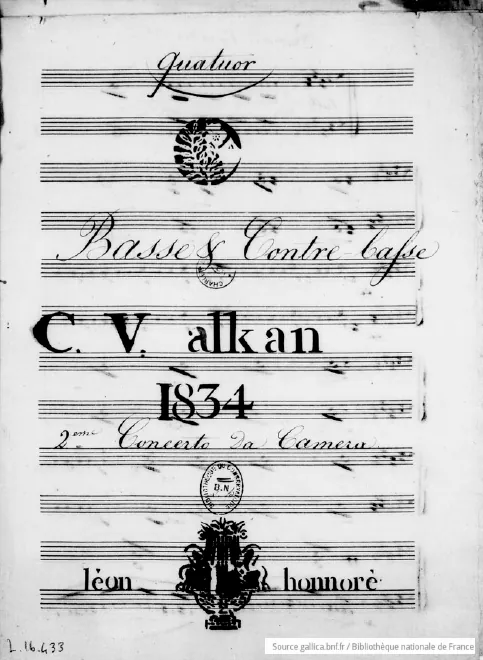 Quatuor
Basse & Contre-basse
C. V. alkan
1834
2eme Concerto Da Camera
BIBLIOTHÈQUE DU CONSERVATOIRE
léon honnorè
L.16.433
Source gallica.bnf.fr / Bibliothèque nationale de France